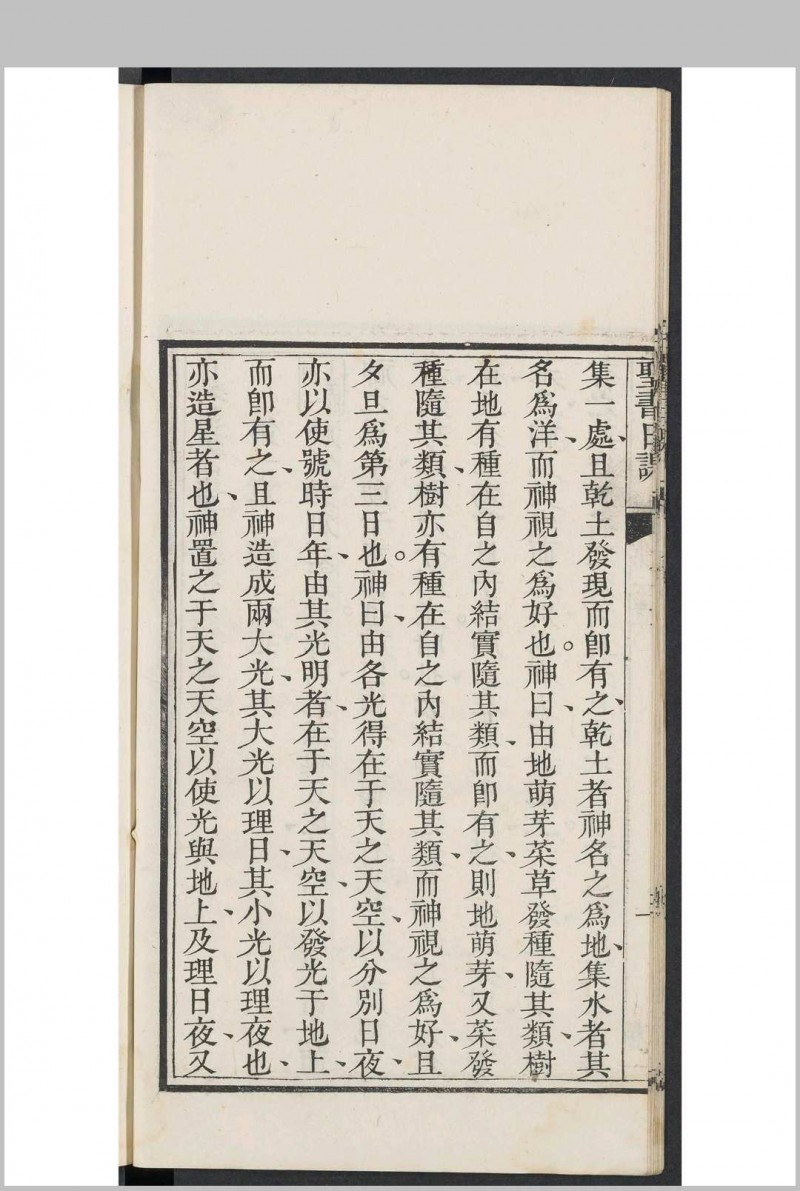 聖書日課
集一處、且乾土發現而即有之、乾土者神名之爲地、集水者其
名爲洋、而神視之爲好也。神曰、由地萌芽菜草發種隨其類、樹
在地有種在自之內結實隨其類、而即有之、則地萌芽、又菜發
種隨其類、樹亦有種在自之內結實隨其類、而神視之爲好、且
夕旦爲第三日也。神曰、由各光得在于天之天空、以分別日夜、
亦以使號時日年、由其光明者、在于天之天空、以發光于地上、
而即有之、且神造成兩大光、其大光以理日、其小光以理夜也、
亦造星者也、神置之于天之天空以使光與地上、及理日夜、又